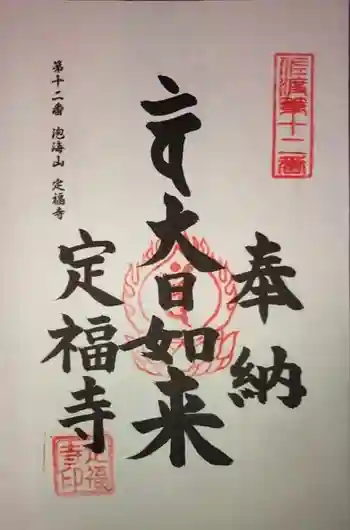 佐渡第十二番
奉納
大日如来
定福寺
第十二番 泡海山 定福寺
定福寺印